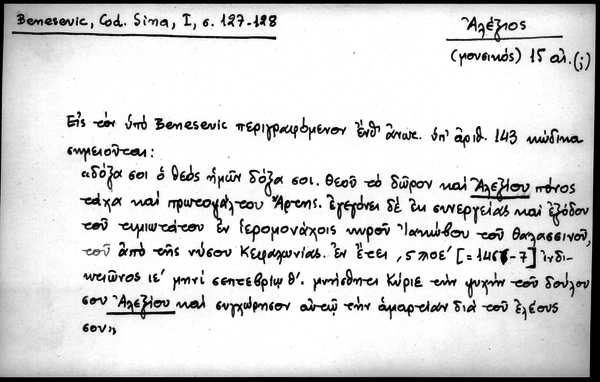 Benesevic, Cod. Sina, I, σ. 127-128
Ἀλέξιος
(μουσικός) 15 αἰ. (;)
Εἰς τὸν ὑπὸ Benesevic περιγραφόμενον ἔνθ' ἀνωτ. ὑπ' ἀριθ. 143 κώδικα
σημειοῦται:
«δόξα σοι ὁ θεὸς ἡμῶν δόξα σοι. Θεοῦ τὸ δῶρον καὶ Ἀλεξίου πόνος
τάχα καὶ πρωτοψάλτου Ἄρτης. ἐγεγόνει δὲ ἐκ συνεργείας καὶ ἐξόδου
τοῦ τιμιωτάτου ἐν ἱερομονάχοις κυροῦ Ἰακώβου τοῦ θαλασσινοῦ,
τοῦ ἀπὸ τῆς νήσου Κεφαλωνίας. ἐν ἔτει ,ϛ϶οε΄ [= 1466-7] ἰνδι-
κτιῶνος ιε΄ μηνὶ σεπτεβρίῳ θ΄. μνήσθητι Κύριε τὴν ψυχὴν τοῦ δούλου
σου Ἀλεξίου καὶ συγχώρησον αὐτῷ τὴν ἁμαρτίαν διὰ τοῦ ἐλέους
σου»